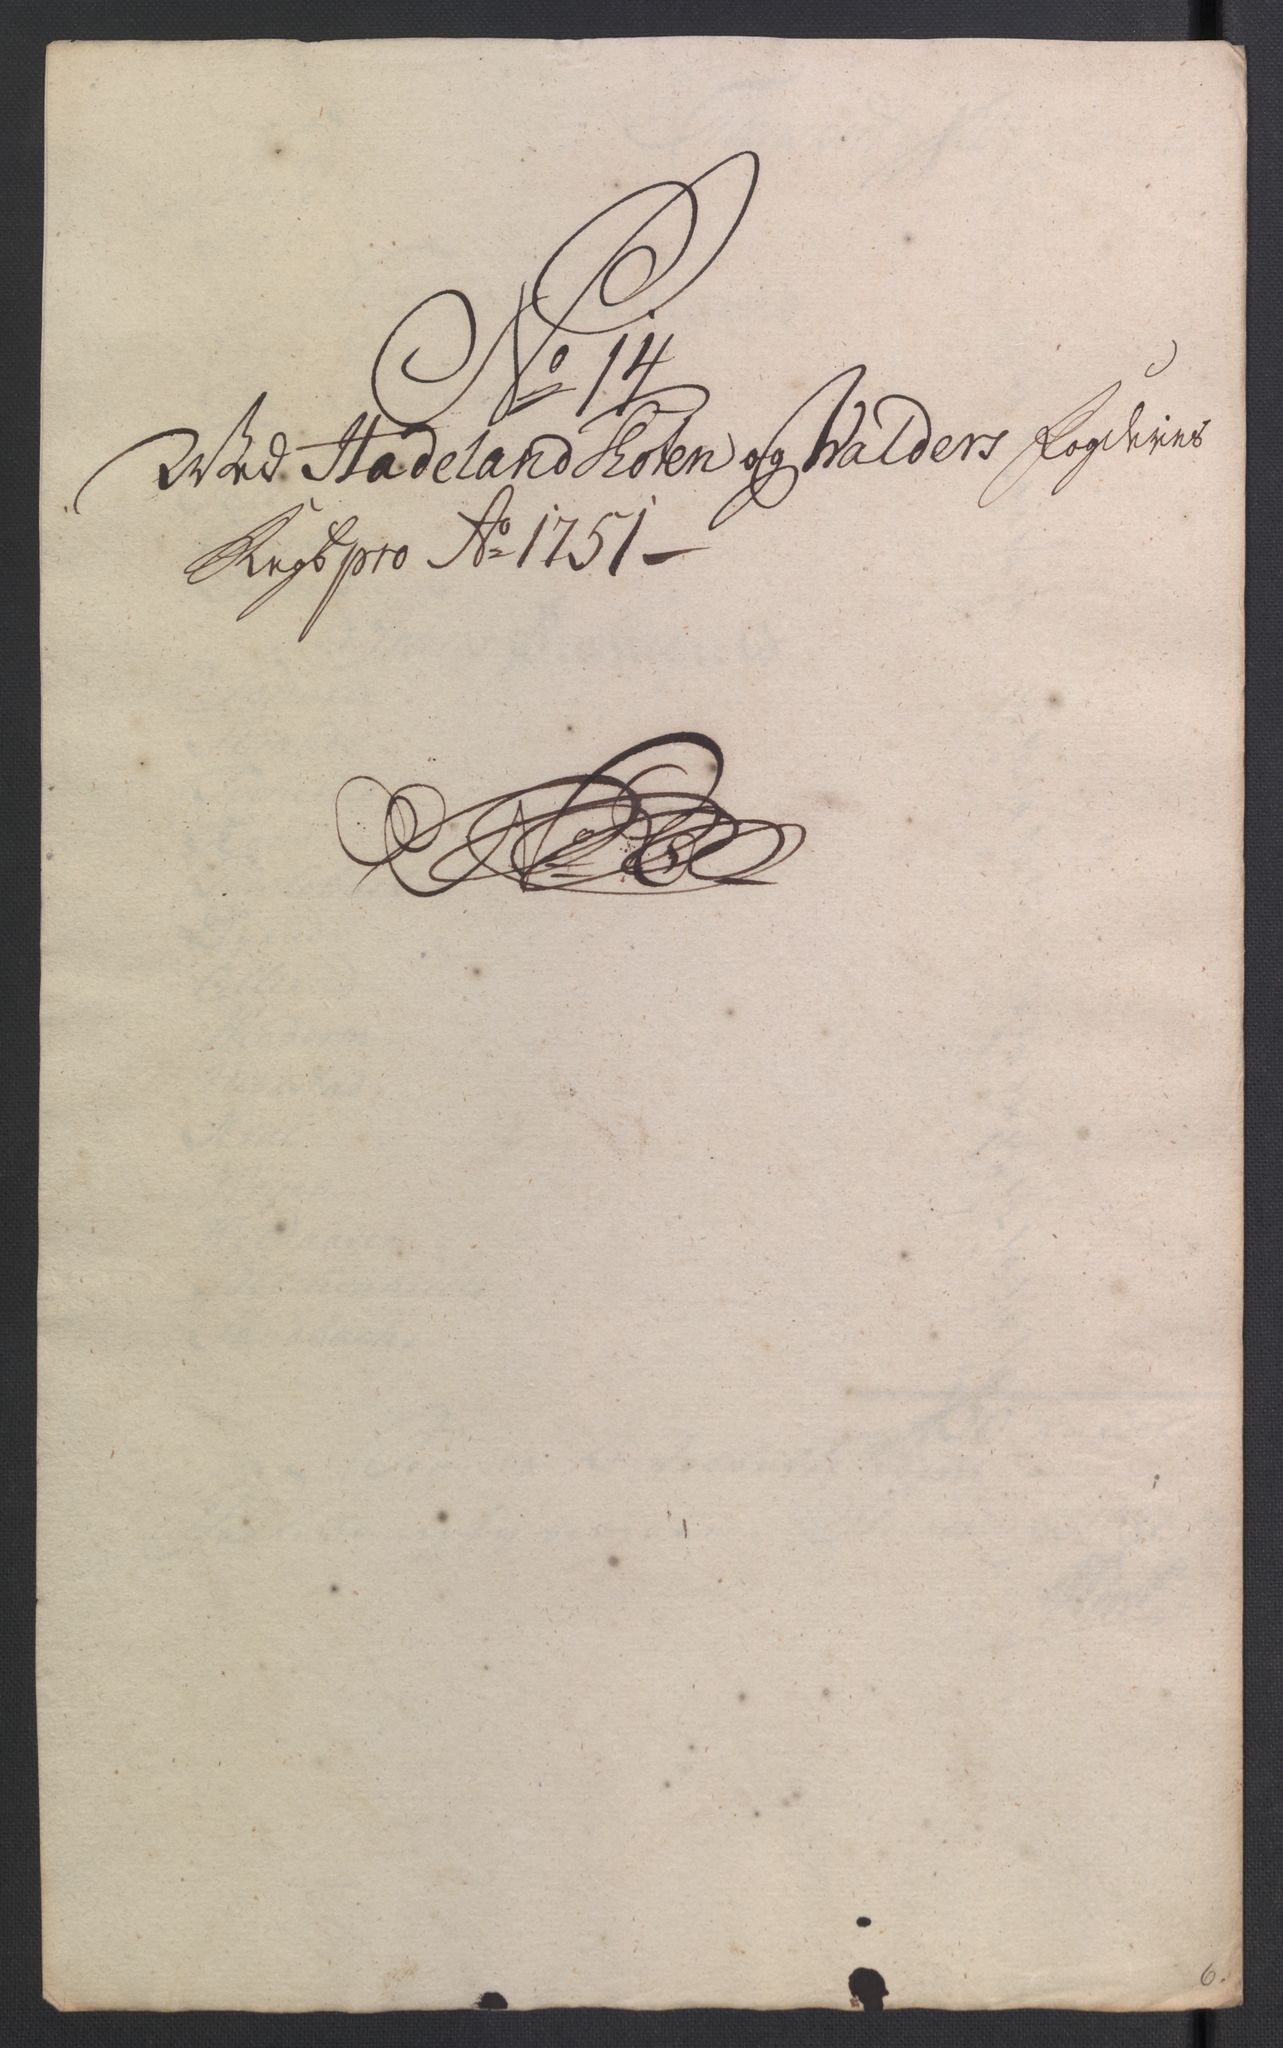 No 14
Wed Hadeland Toten og Walders Fogderies
Regsb pro Ao 1751
No
6.